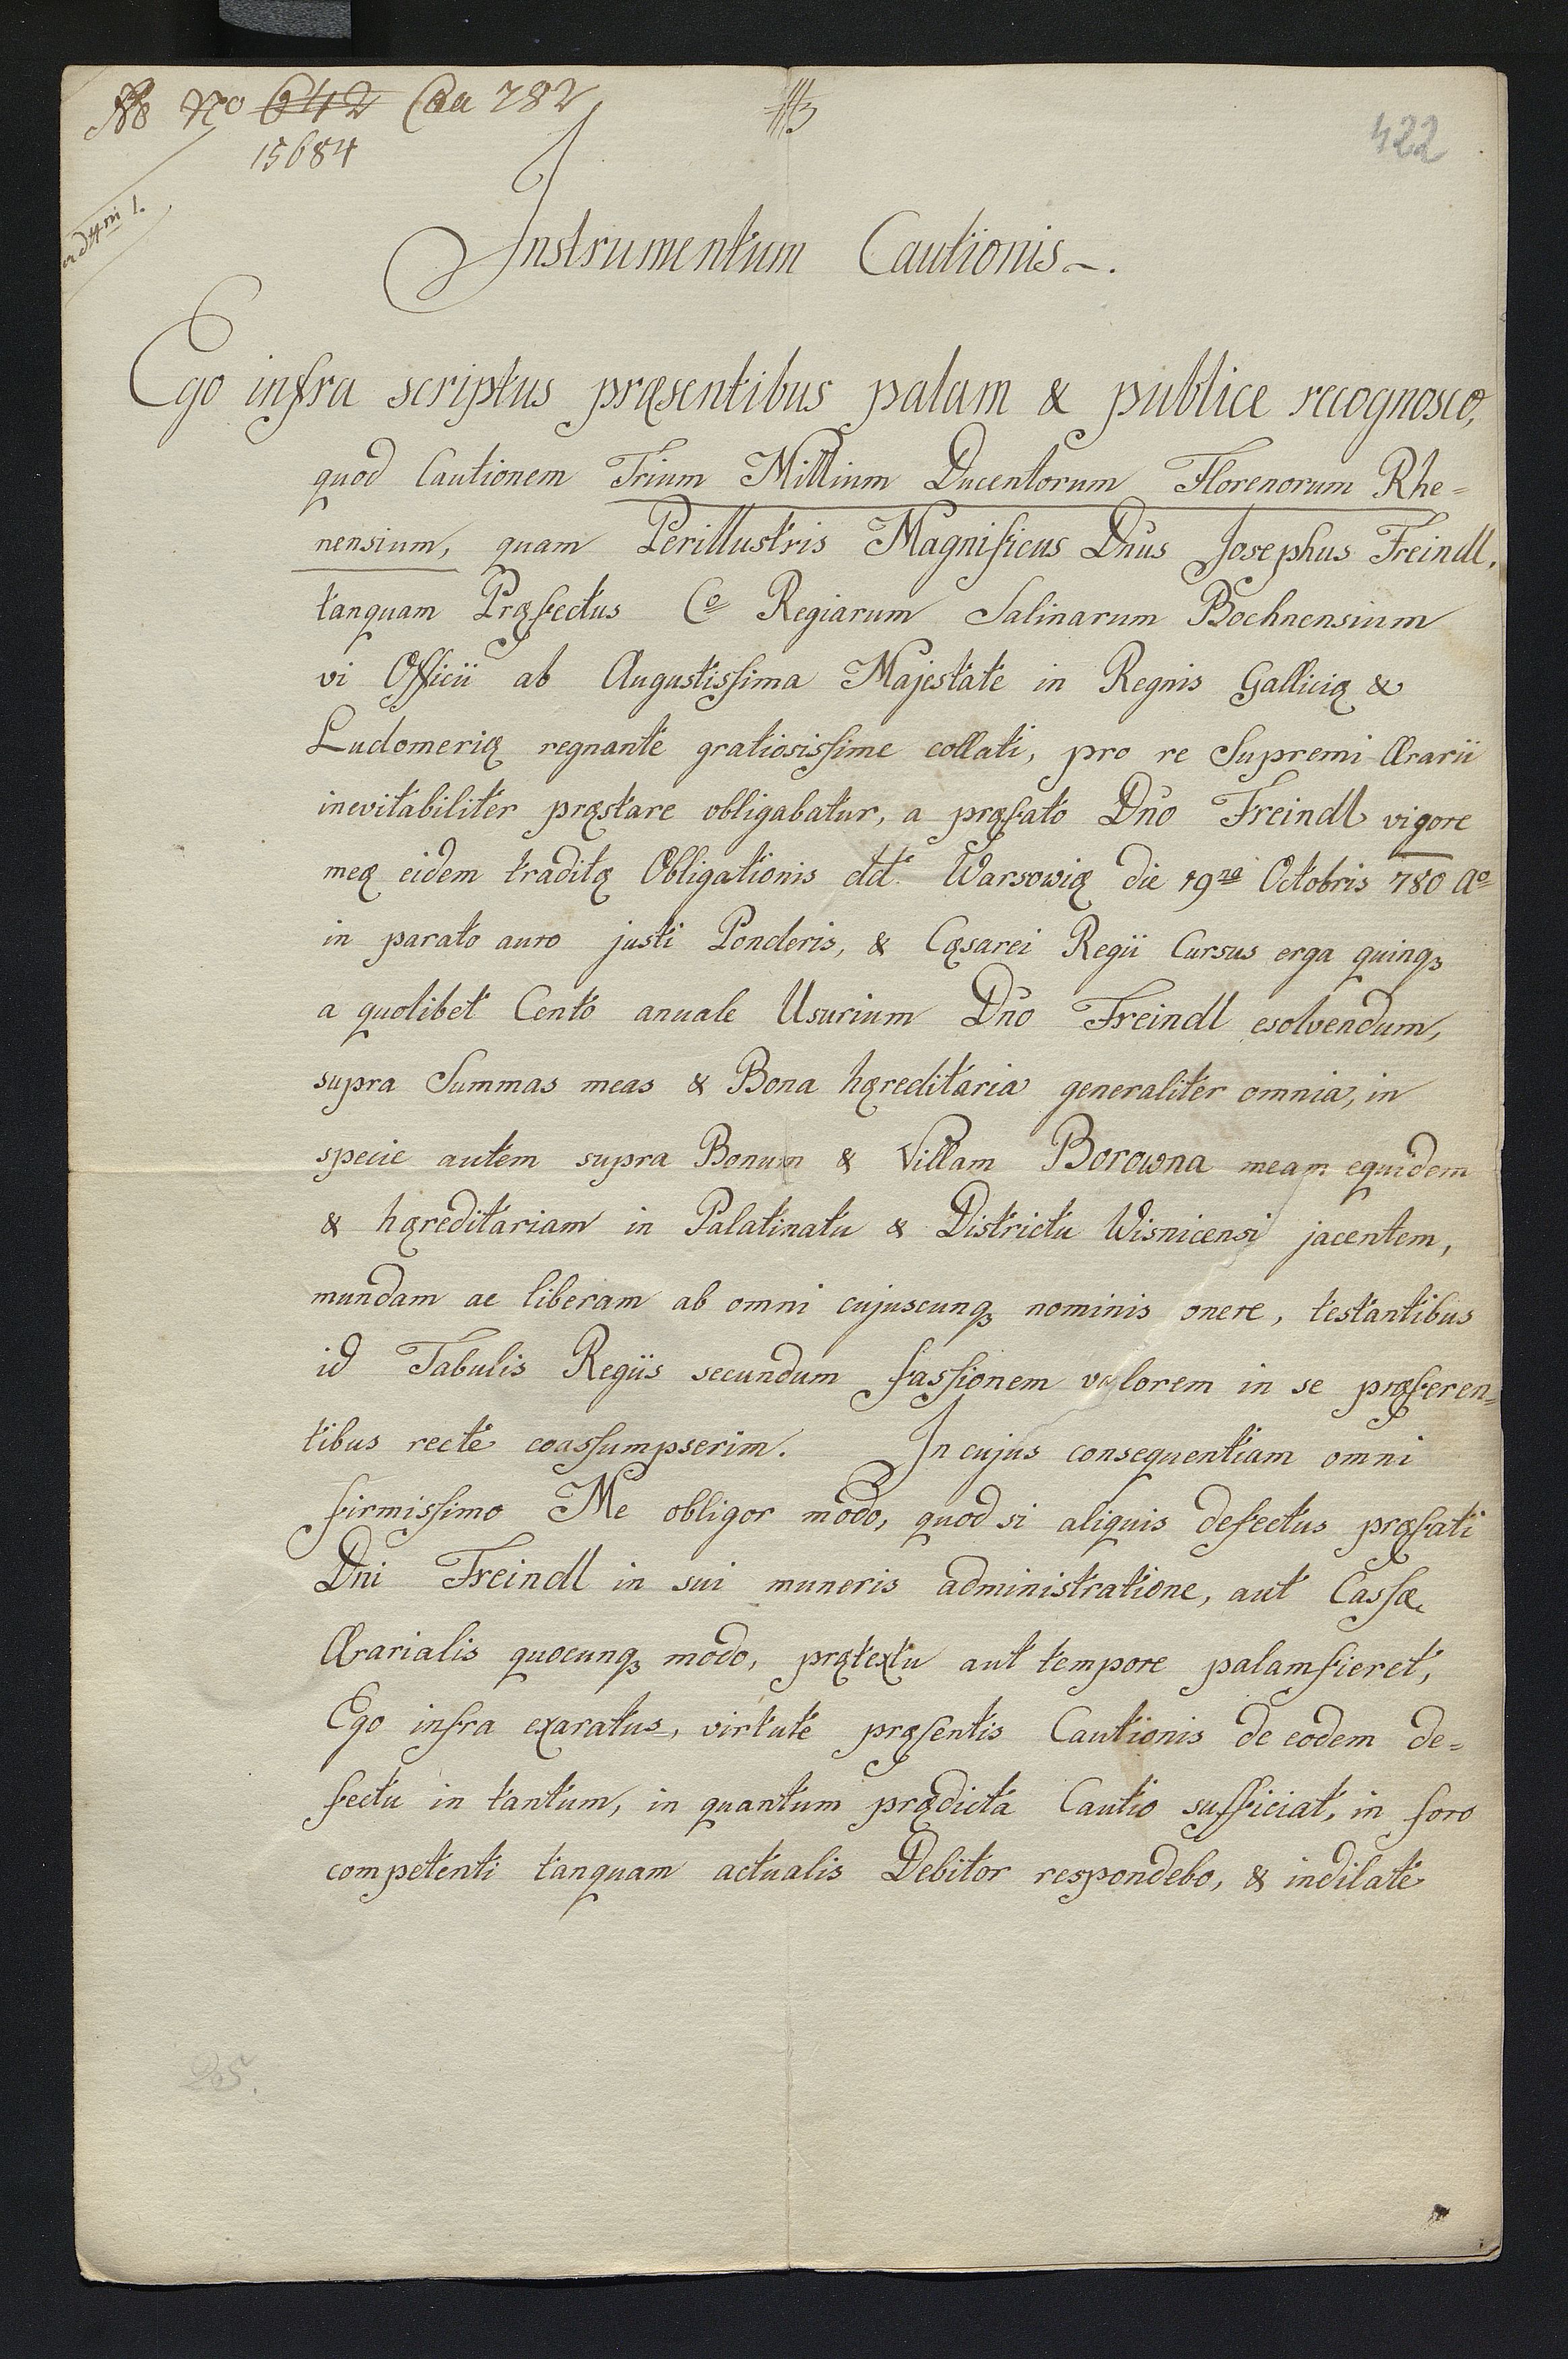 No 642 Ca 782
15684
422
Instrumentum Cautionis.
Ego infra scriptus præsentibus palam & publice recognosco,
quod Cautionem Trium Millium Ducentorum Florenorum Rhe=
nensium, quam Perillustris Magnificus Dnus Josephus Freindl,
tanquam Præfectus Co Regiarum Salinarum Bochnensium
vi Officii ab Augustissima Majestate in Regnis Galliciæ &
Ludomeriæ regnante gratiosissime collati, pro re Supremi Ærarii
inevitabiliter præstare obligabatur, a præfato Dno Freindl vigore
meæ eidem traditæ Obligationis dd. Warsowiæ die 19na Octobris 780 Ao
in parato auro justi Ponderis, & Cæsarei Regii Cursus erga quinqꝫ
a quolibet Cento anuale Usurium Dno Freindl esolvendum,
supra Summas meas & Bona hæreditaria generaliter omnia, in
specie autem supra Bonum & Villam Borowna meam equidem
& hæreditariam in Palatinatu & Districtu Wisnicensi jacentem,
mundam ac liberam ab omni cujuscunqꝫ nominis onere, testantibus
id Tabulis Regiis secundum fassionem valorem in se præferen=
tibus recte coassumpserim. In cujus consequentiam omni
firmissimo Me obligor modo, quod si aliquis defectus præfati
Dni Freindl in sui muneris administratione, aut Cassæ
Ærarialis quocunqꝫ modo, prætextu aut tempore palamfieret,
Ego infra exaratus, virtute præsentis Cautionis de eodem de=
fectu in tantum, in quantum prædicta Cautio sufficiat, in foro
competenti tanquam actualis Debitor respondebo, & indilate